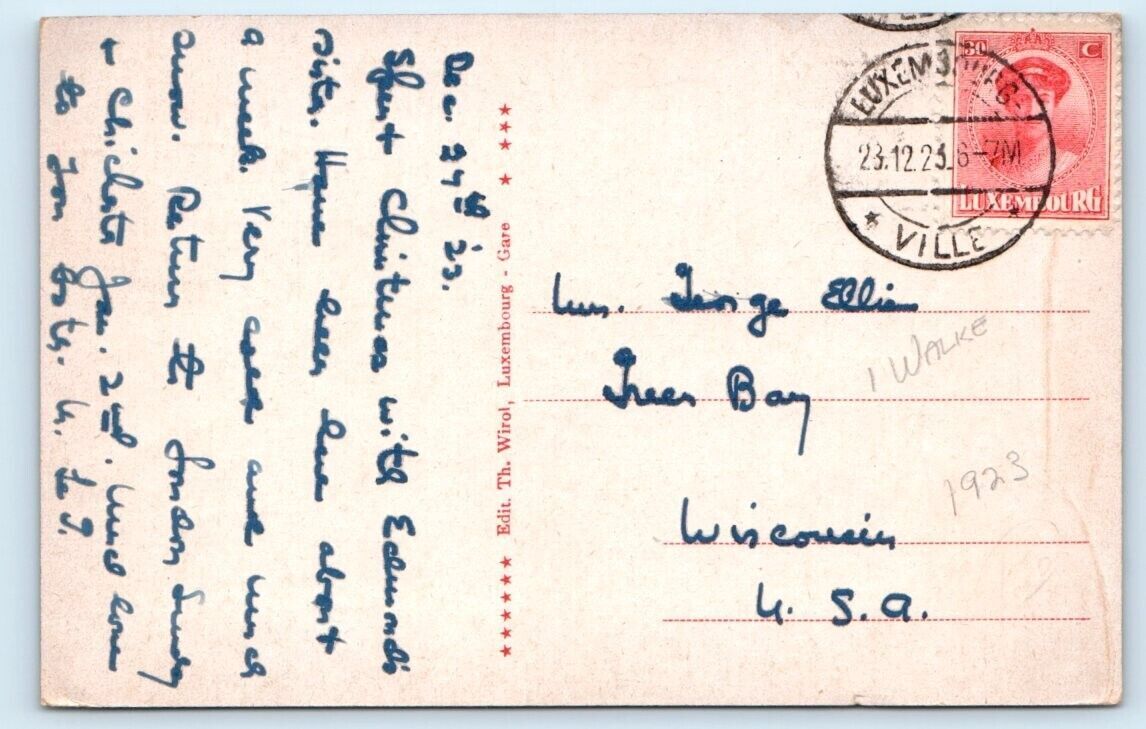 Dec. 27th '23.
Spent Christmas with Edmond's
sister. Have been here about
a week. Very cold and much
snow. Return to London Sunday
+ Chichester Jan. 2nd. Much love
to you both.
★★★★★★ Edit. Th. Wirol, Luxembourg - Gare ★ ★★★
30 C
LUXEMBOURG
LUXEMBOURG-
23.12.23.6-7M
★ VILLE ★
Mrs. George Ellis
Green Bay
Wisconsin
U. S. A.
1923